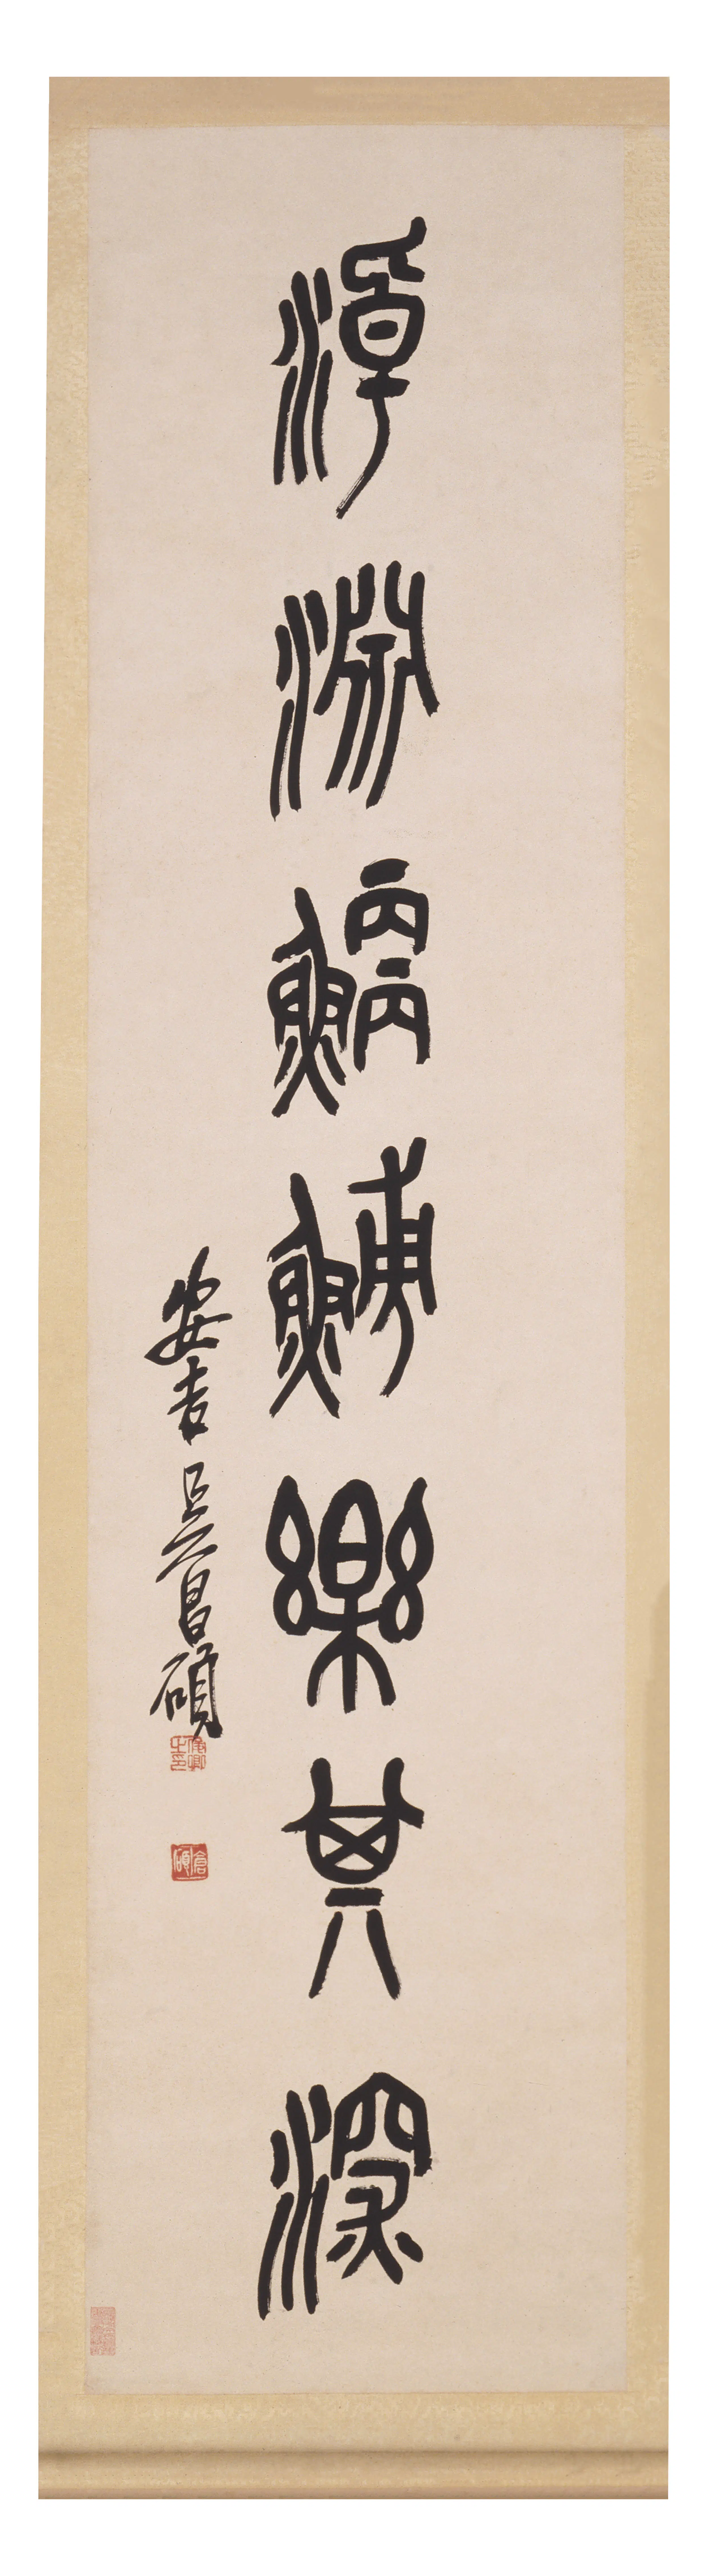 淖淵鯾鯆樂其深
安吉吳昌碩
俊卿之印
倉碩